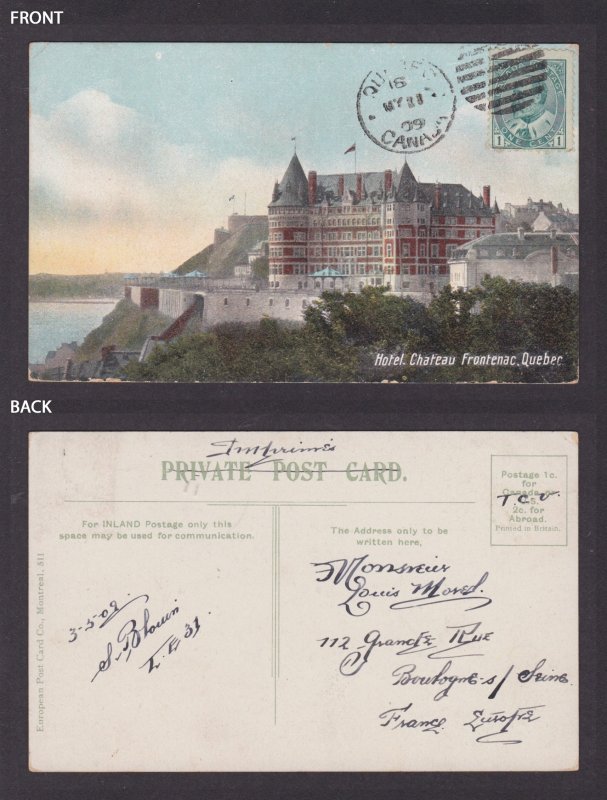 FRONT
QUEBEC
18
MY 11
09
CANADA
CANADA POSTAGE
1 ONE CENT 1
Hotel. Chateau Frontenac, Quebec
BACK
Imprimés
PRIVATE POST CARD.
Postage 1c.
for
Canada
T.C.V.
2c. for
Abroad.
Printed in Britain.
For INLAND Postage only this
space may be used for communication.
The Address only to be
written here.
European Post Card Co., Montreal. 511
3-5-09
S. Blouin
Monsieur
Louis Morel
112 Grande Rue
Boulogne-s/Seine
France Europe